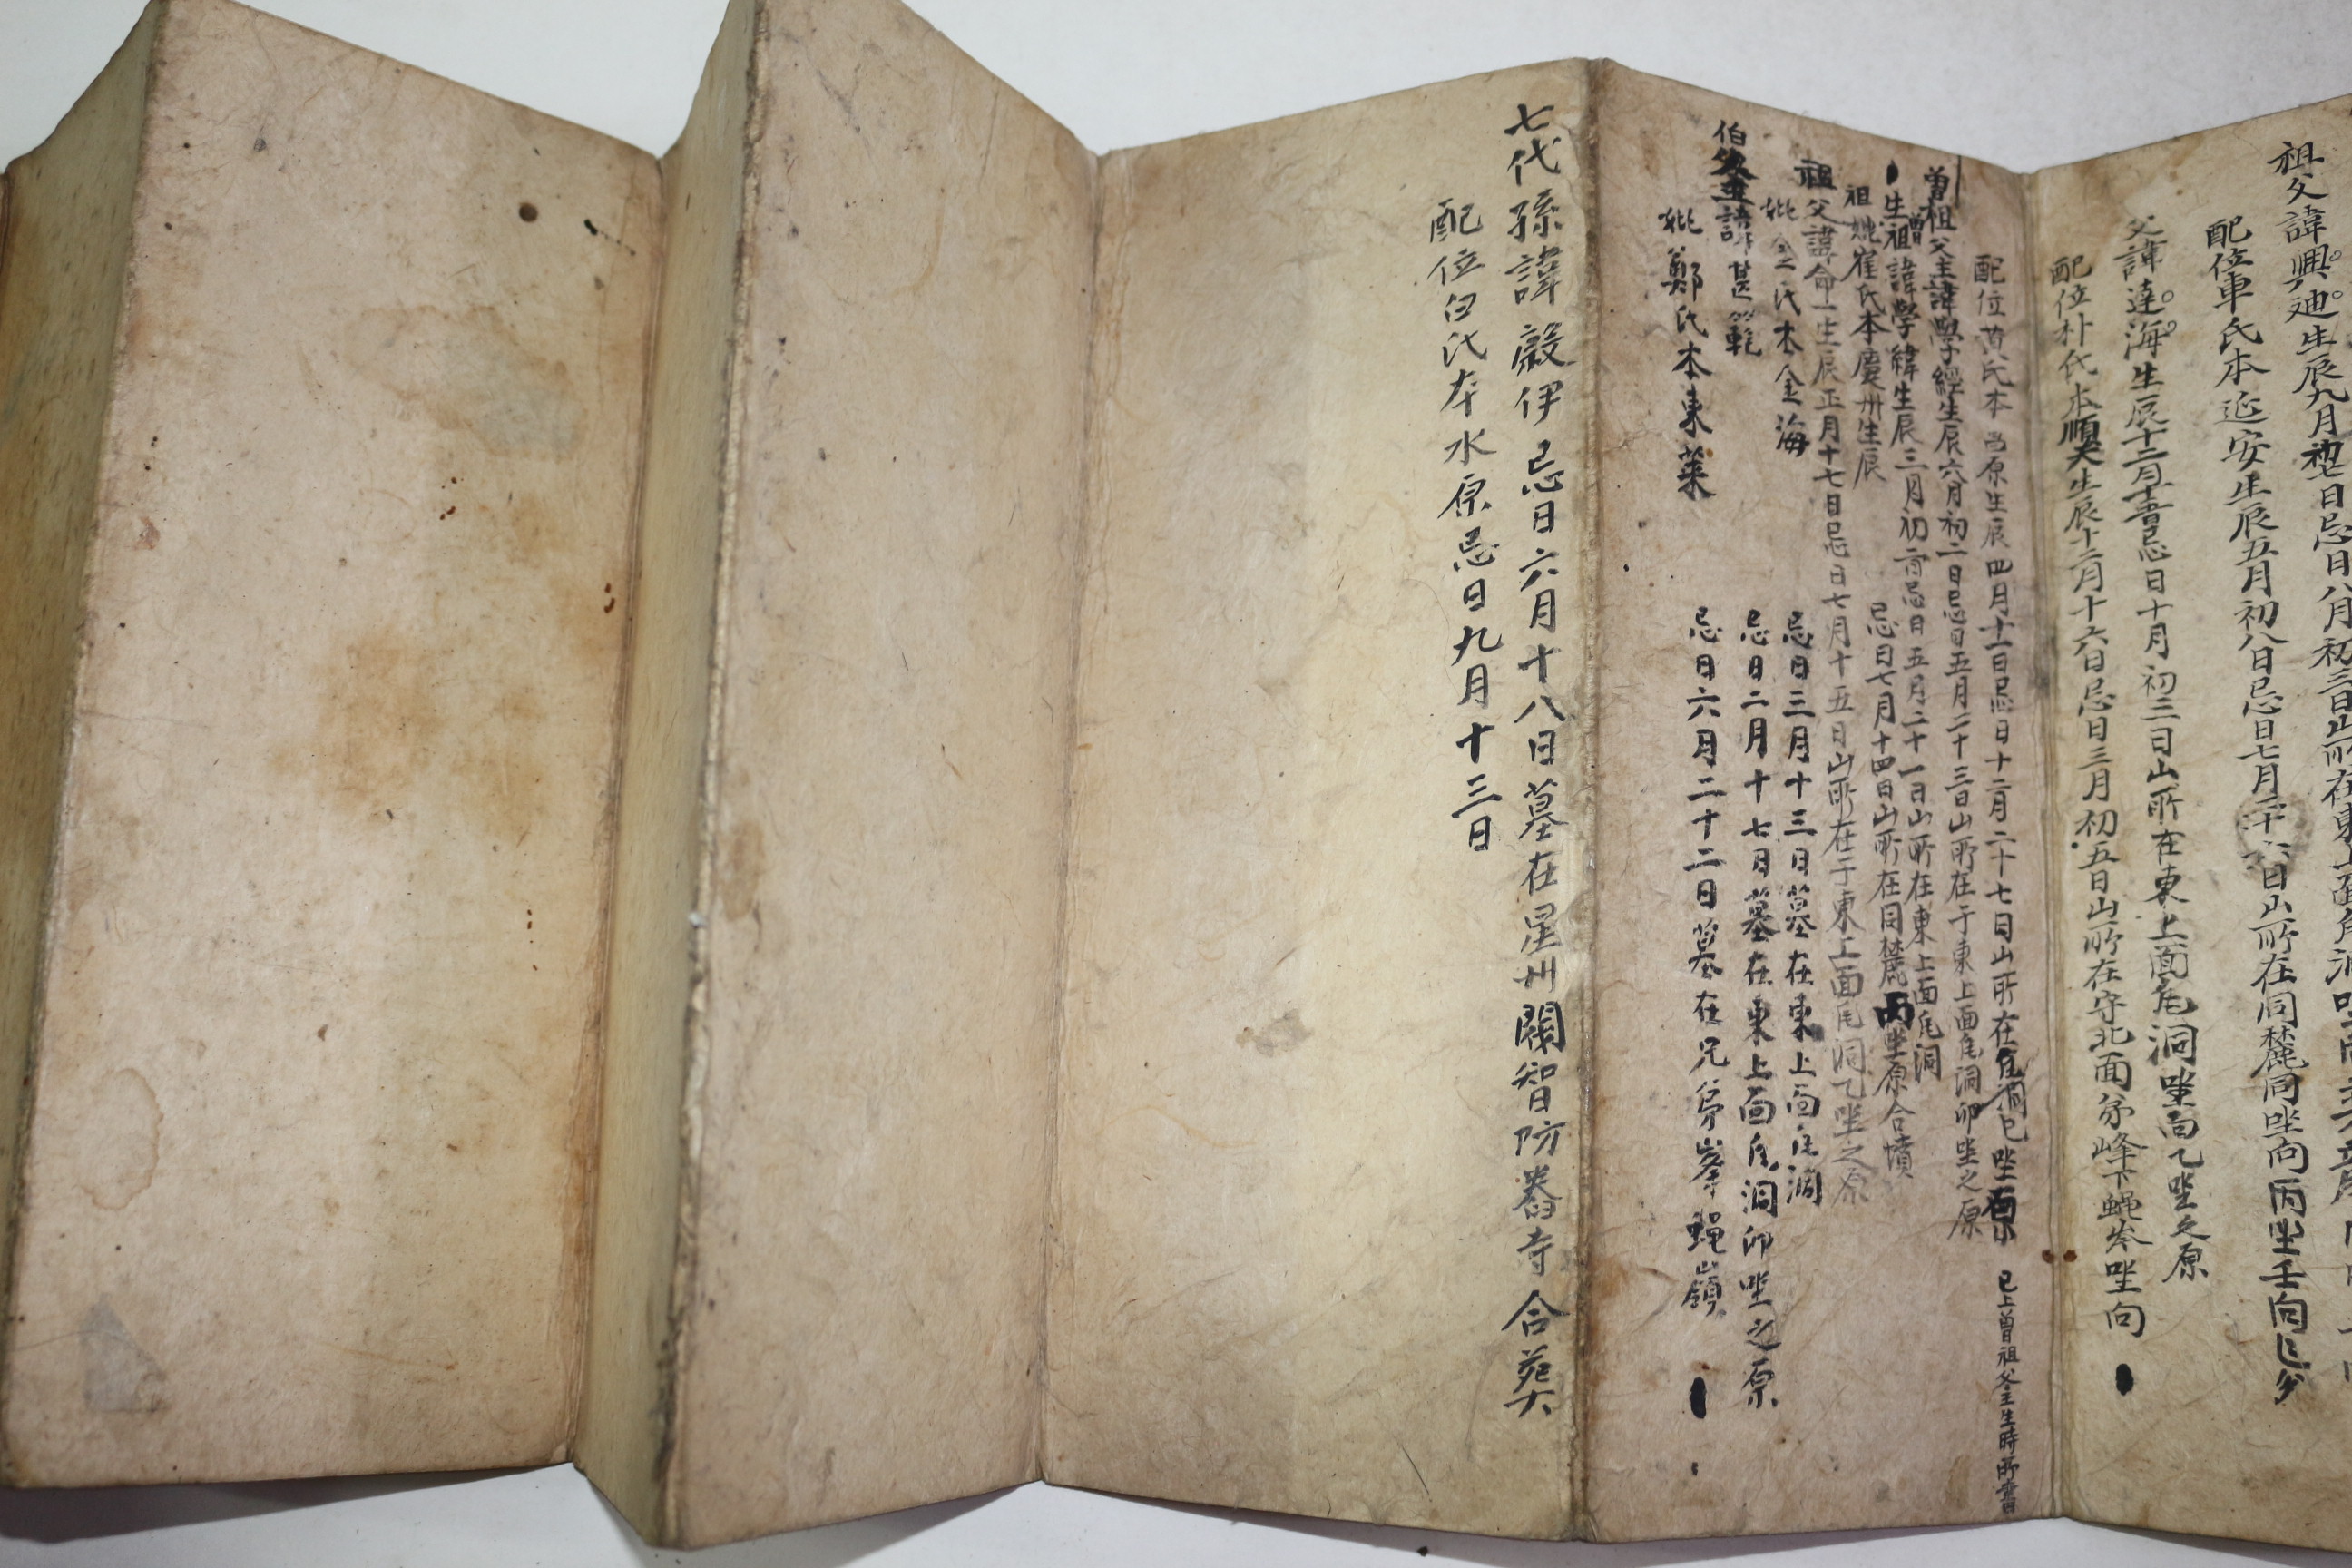 祖父諱興迪生辰九月初七日忌日八月初三日山所在東上面角洞
配位車氏本延安生辰五月初八日忌日七月二十六日山所在同麓同坐向丙坐壬向
父諱達海生辰十二月忌日十月初三日山所在東上面瓦洞坐向乙坐之原
配位朴氏本順天生辰十二月十六日忌日三月初五日山所在守北面弟峰下蝿岺坐向
配位黄氏本原生辰四月十一日忌日十二月二十七日山所在瓦洞巳坐原 已上曾祖父主生時所書
曾祖父主諱學經生辰六月初二日忌日五月二十三日山所在于東上面瓦洞卯坐之原
生曾祖諱學緯生辰三月初忌日五月二十一日山所在東上面瓦洞
祖妣崔氏本慶州生辰 忌日七月十四日山所在同麓丙坐原合墳
祖父諱命一生辰正月十七日忌日七月十五日山所在于東上面瓦洞乙坐之原
妣金氏本金海 忌日三月十三日墓在東上面瓦洞
伯父主諱甚範 忌日二月十七日墓在東上面瓦洞卯坐之原
妣鄭氏本東萊 忌日六月二十二日墓在兄弟峯蝿嶺
七代孫諱毅伊忌日六月十八日墓在星州閣智防舊寺合葬
配位白氏本水原忌日九月十三日